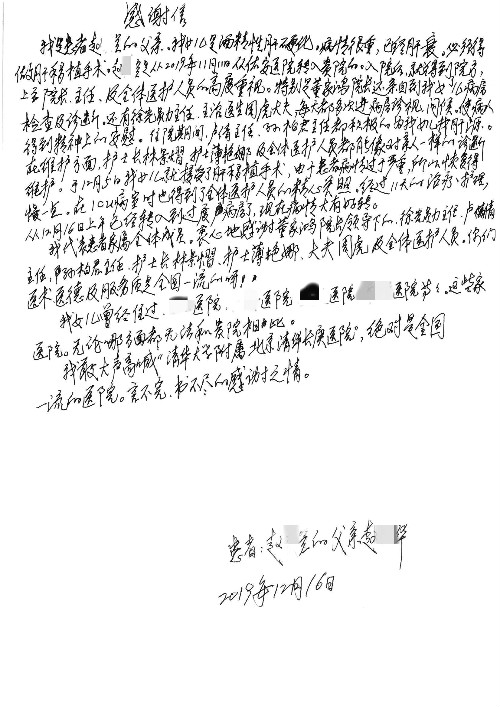 感谢信
我是患者赵 兰的父亲。我女儿是酒精性肝硬化。病情很重，已经肝衰。必须得
做肝移植手术。赵 兰是从2019年11月11日从佑安医院转入贵院的。入院后，就得到院方，
上至院长、主任、及全体医护人员的高度重视。特别是董家鸿院长还亲自到我女儿病房
检查及诊断。还有徐光勋主任、主治医生周虎大夫，每天都多次进病房诊视、问候。使病人
得到精神上的安慰。住院期间，卢倩主任、孙柏君主任都积极的为我女儿找肝源。
在维护方面，护士长林荣熠、护士薄艳娜及全体医护人员都月像对亲人一样的诊断
维护。于12月5日我女儿就接受了肝移植手术，由于患者病情过于严重，所以恢复得
慢一点。在ICU病室时也得到了全体医护人员的精心照照。经过11天的治疗、护理，
从12月16日上午已经转入到过度病房了，现在病情大有好转。
我代表患者家属全体成员。衷心地感谢董家鸿院长领导下的、徐光勋主任、卢倩
主任、孙柏君主任、护士长林荣熠、护士薄艳娜、大夫周虎及全体医护人员。你们
医术医德及服务质是全国一流的啊！！
我女儿曾经住过、 医院、 医院 医院 医院等等。这些家
医院。无论哪方面都无法和贵院相比。
我最大声高喊“清华大学附属北京清华长庚医院”，绝对是全国
一流的医院。言不完、书不尽的感谢之情。
患者:赵 兰的父亲赵 华
2019年12月16日